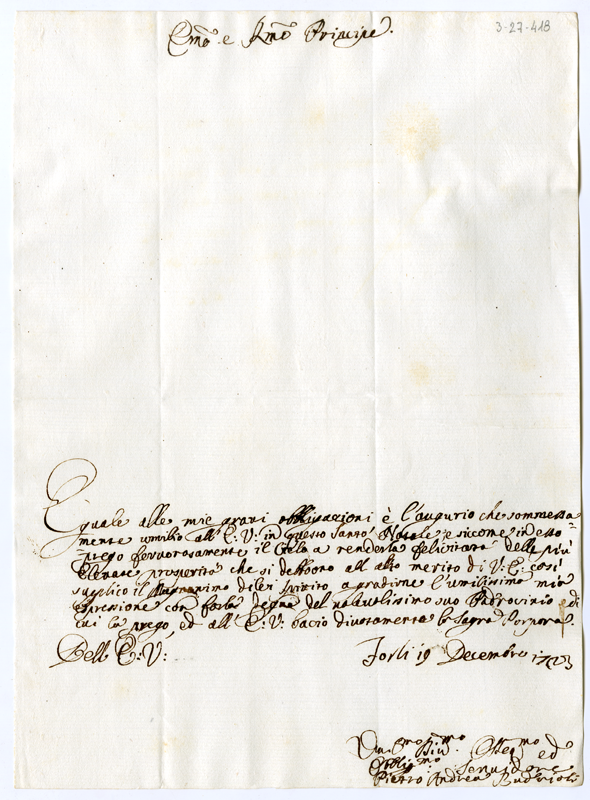 3-27-418
Emo. e Rmo Principe.
Eguale alle mie gravi obbligazioni è l'augurio che sommessa
mente umilio all'E: V: in questo Santo Natale, e siccome in esso
prego fervorosamente il Cielo a renderla felicitata delle più
elevate prosperità che si debbono all'alto merito di V: E: così
suplico il Magnanimo di lei spirito a gradirne l'umilissima mia
espresione con farla degna del validissimo suo Padrocinio di
cui la prego, ed all'E: V: bacio divotamente la Sagra Porpora.
Dell'E: V:
Forlì 19 Decembre 1723
Umo Divmo ed
Obbligmo Servidore
Pietro Andrea